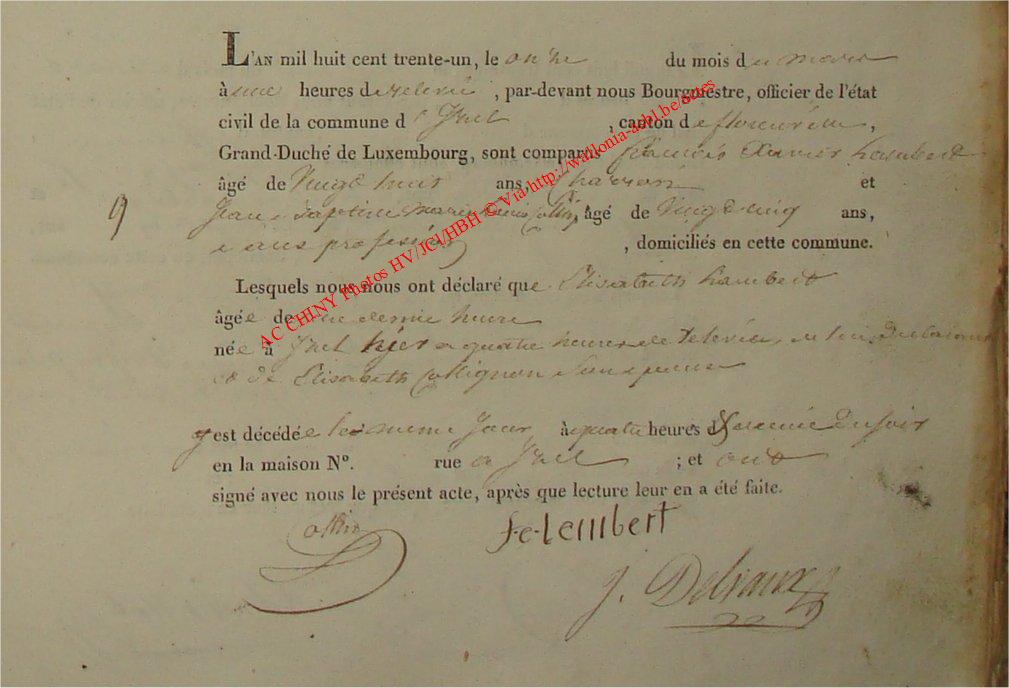 L'AN mil huit cent trente-un, le onze du mois de mars
à une heures de relevée, par-devant nous Bourgmestre, officier de l'état
civil de la commune d'Izel, canton de florenville,
Grand-Duché de Luxembourg, sont comparus françois Xavier Lambert
âgé de Vingt huit ans, Charron et
9
Jean Baptiste marie Collin, âgé de Vingt cinq ans,
sans profession, domiciliés en cette commune.
Lesquels nous nous ont déclaré que Elisabeth Lambert
âgée de une demie heure
née à Izel hier a quatre heures de relevée,
et de Elisabeth Collignon
y est décédée le meme jour à quatre heures & demie du soir
en la maison N°. rue a Izel ; et ont
signé avec nous le présent acte, après que lecture leur en a été faite.
Collin
f-c-Lembert
J. Delvaux
AC CHINY Photos HV/JCl/HBH © Via http://wallonia-asbl.be/actes